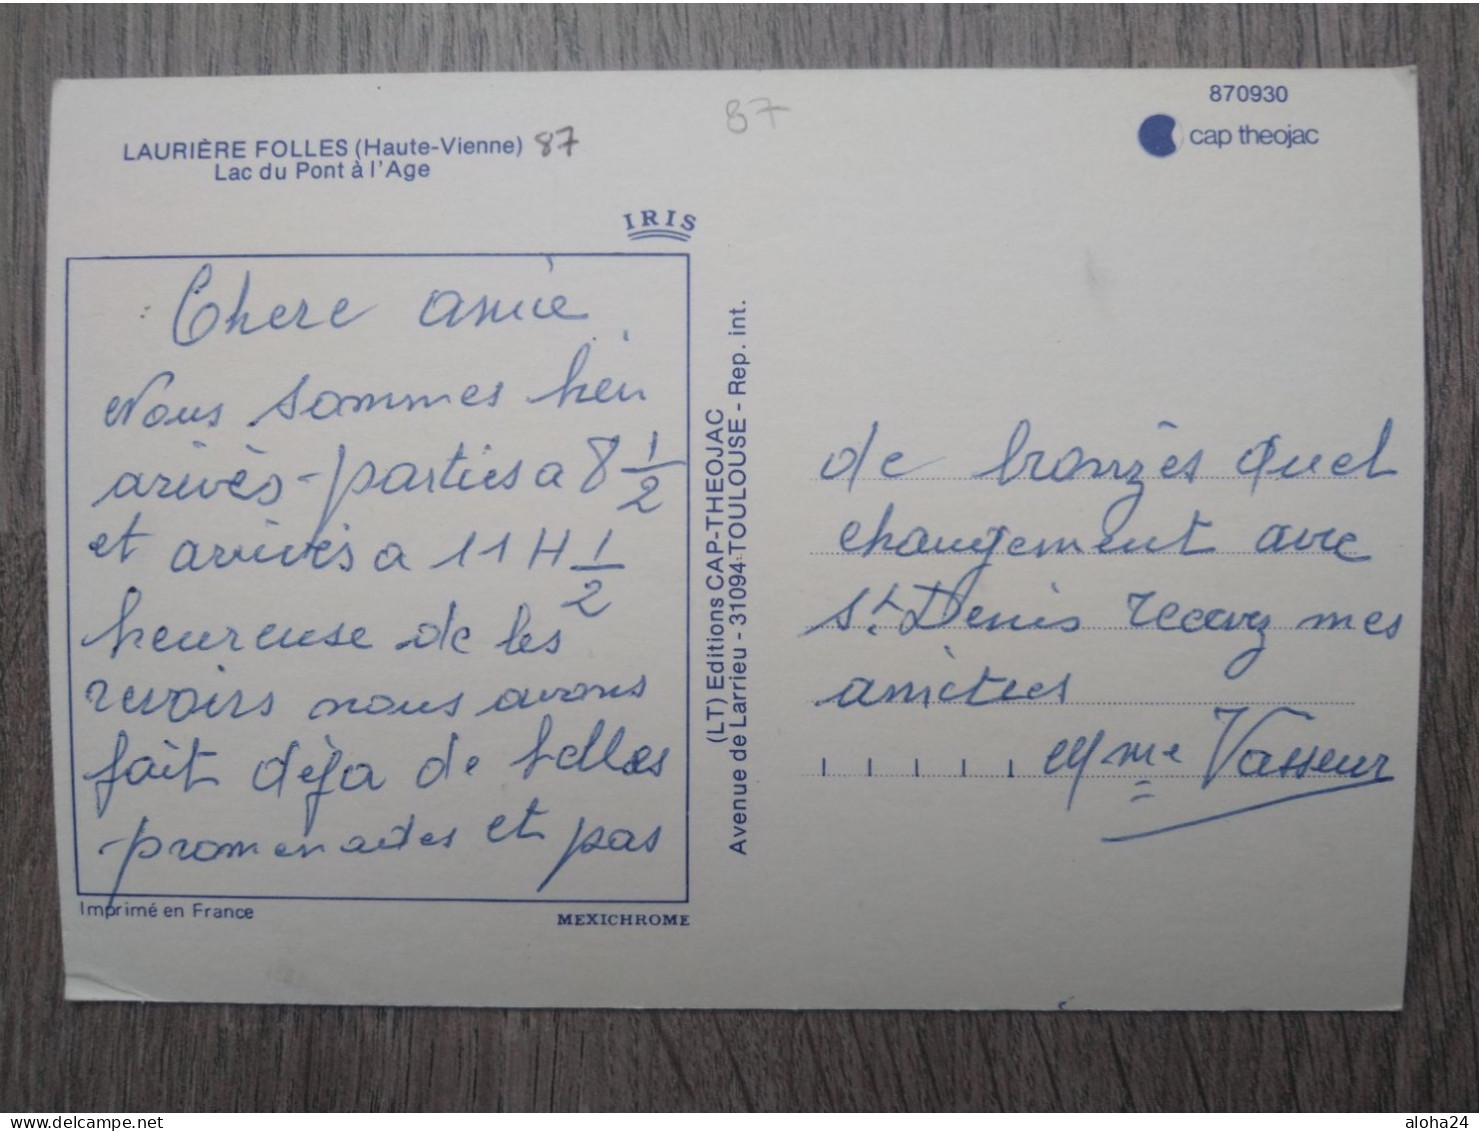 870930
cap theojac
87
LAURIÈRE FOLLES (Haute-Vienne) 87
Lac du Pont à l'Age
IRIS
Chere amie
Nous sommes bien
arivès - parties a 8 1/2
et arrivès a 11 H 1/2
heureuse de les
revoirs nous avons
fait dèja de belles
promenades et pas
de bronzès quel
changement avec
St. Denis recevez mes
amities
Mme Vasseur
(LT) Editions CAP-THEOJAC
Avenue de Larrieu - 31094 TOULOUSE - Rep. int.
Imprimé en France
MEXICHROME
www.delcampe.net
aloha24